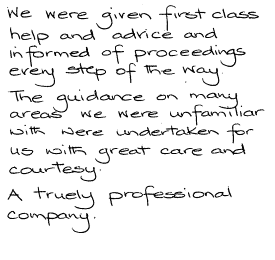 We were given first class
help and advice and
informed of proceedings
every step of the way.
The guidance on many
areas we were unfamiliar
with were undertaken for
us with great care and
courtesy.
A truely professional
company.